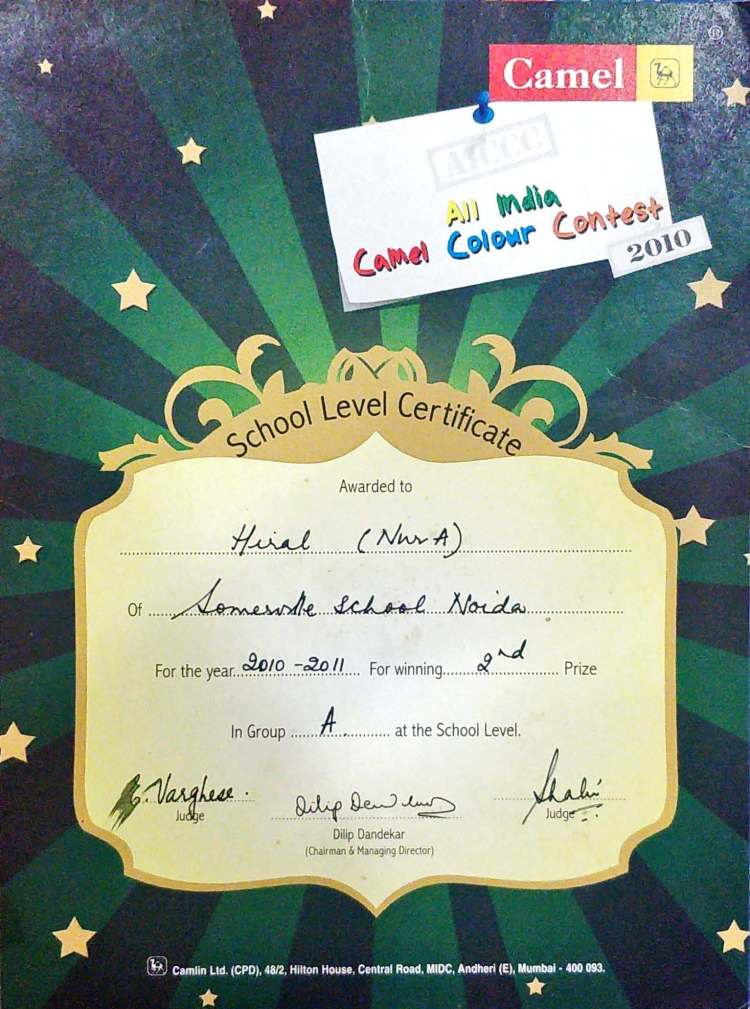 Camel
®
AICCC
All India
Camel Colour Contest
2010
School Level Certificate
Awarded to
Hiral (Nur A)
Of Somerville School Noida
For the year 2010 - 2011 For winning 2nd Prize
In Group A at the School Level.
G. Varghese. Dilip Dandekar Shalu
Judge Judge
Dilip Dandekar
(Chairman & Managing Director)
Camlin Ltd. (CPD), 48/2, Hilton House, Central Road, MIDC, Andheri (E), Mumbai - 400 093.